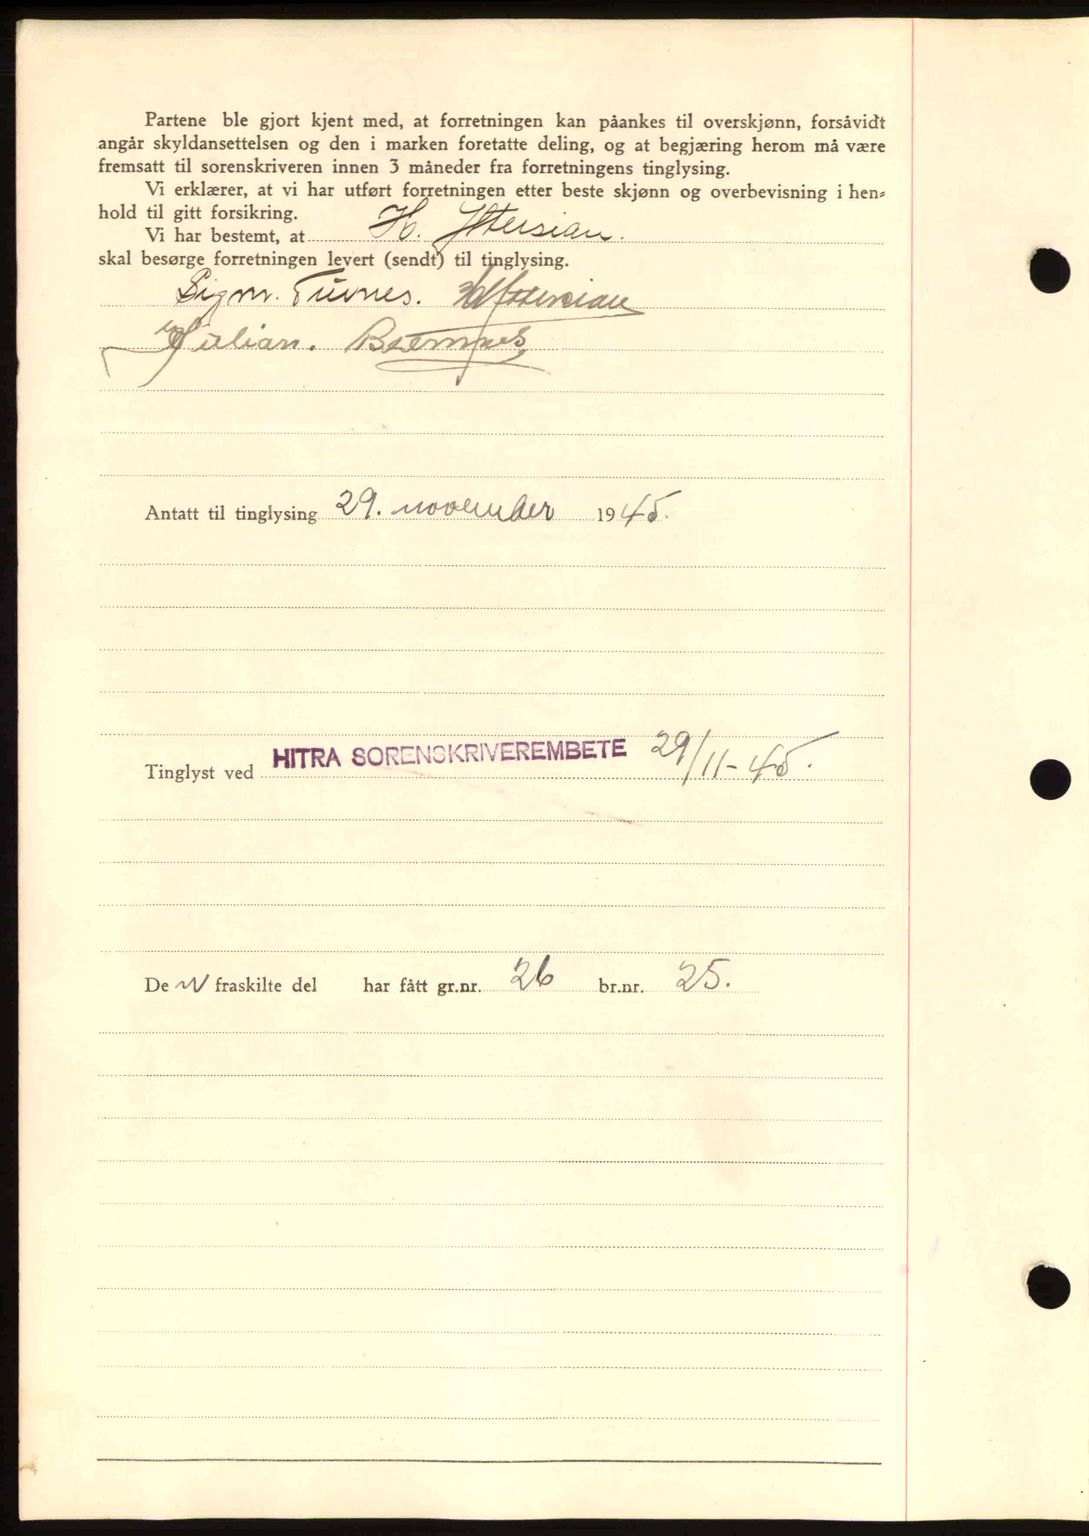 Partene ble gjort kjent med, at forretningen kan påankes til overskjønn, forsåvidt
angår skyldansettelsen og den i marken foretatte deling, og at begjæring herom må være
fremsatt til sorenskriveren innen 3 måneder fra forretningens tinglysing.
Vi erklærer, at vi har utført forretningen etter beste skjønn og overbevisning i hen-
hold til gitt forsikring.
Vi har bestemt, at H. Ytersian.
skal besørge forretningen levert (sendt) til tinglysing.
Sigm.
Julian.
Antatt til tinglysing 29. november 1945.
Tinglyst ved HITRA SORENSKRIVEREMBETE 29/11-45.
De n fraskilte del har fått gr.nr. 26 br.nr. 25.